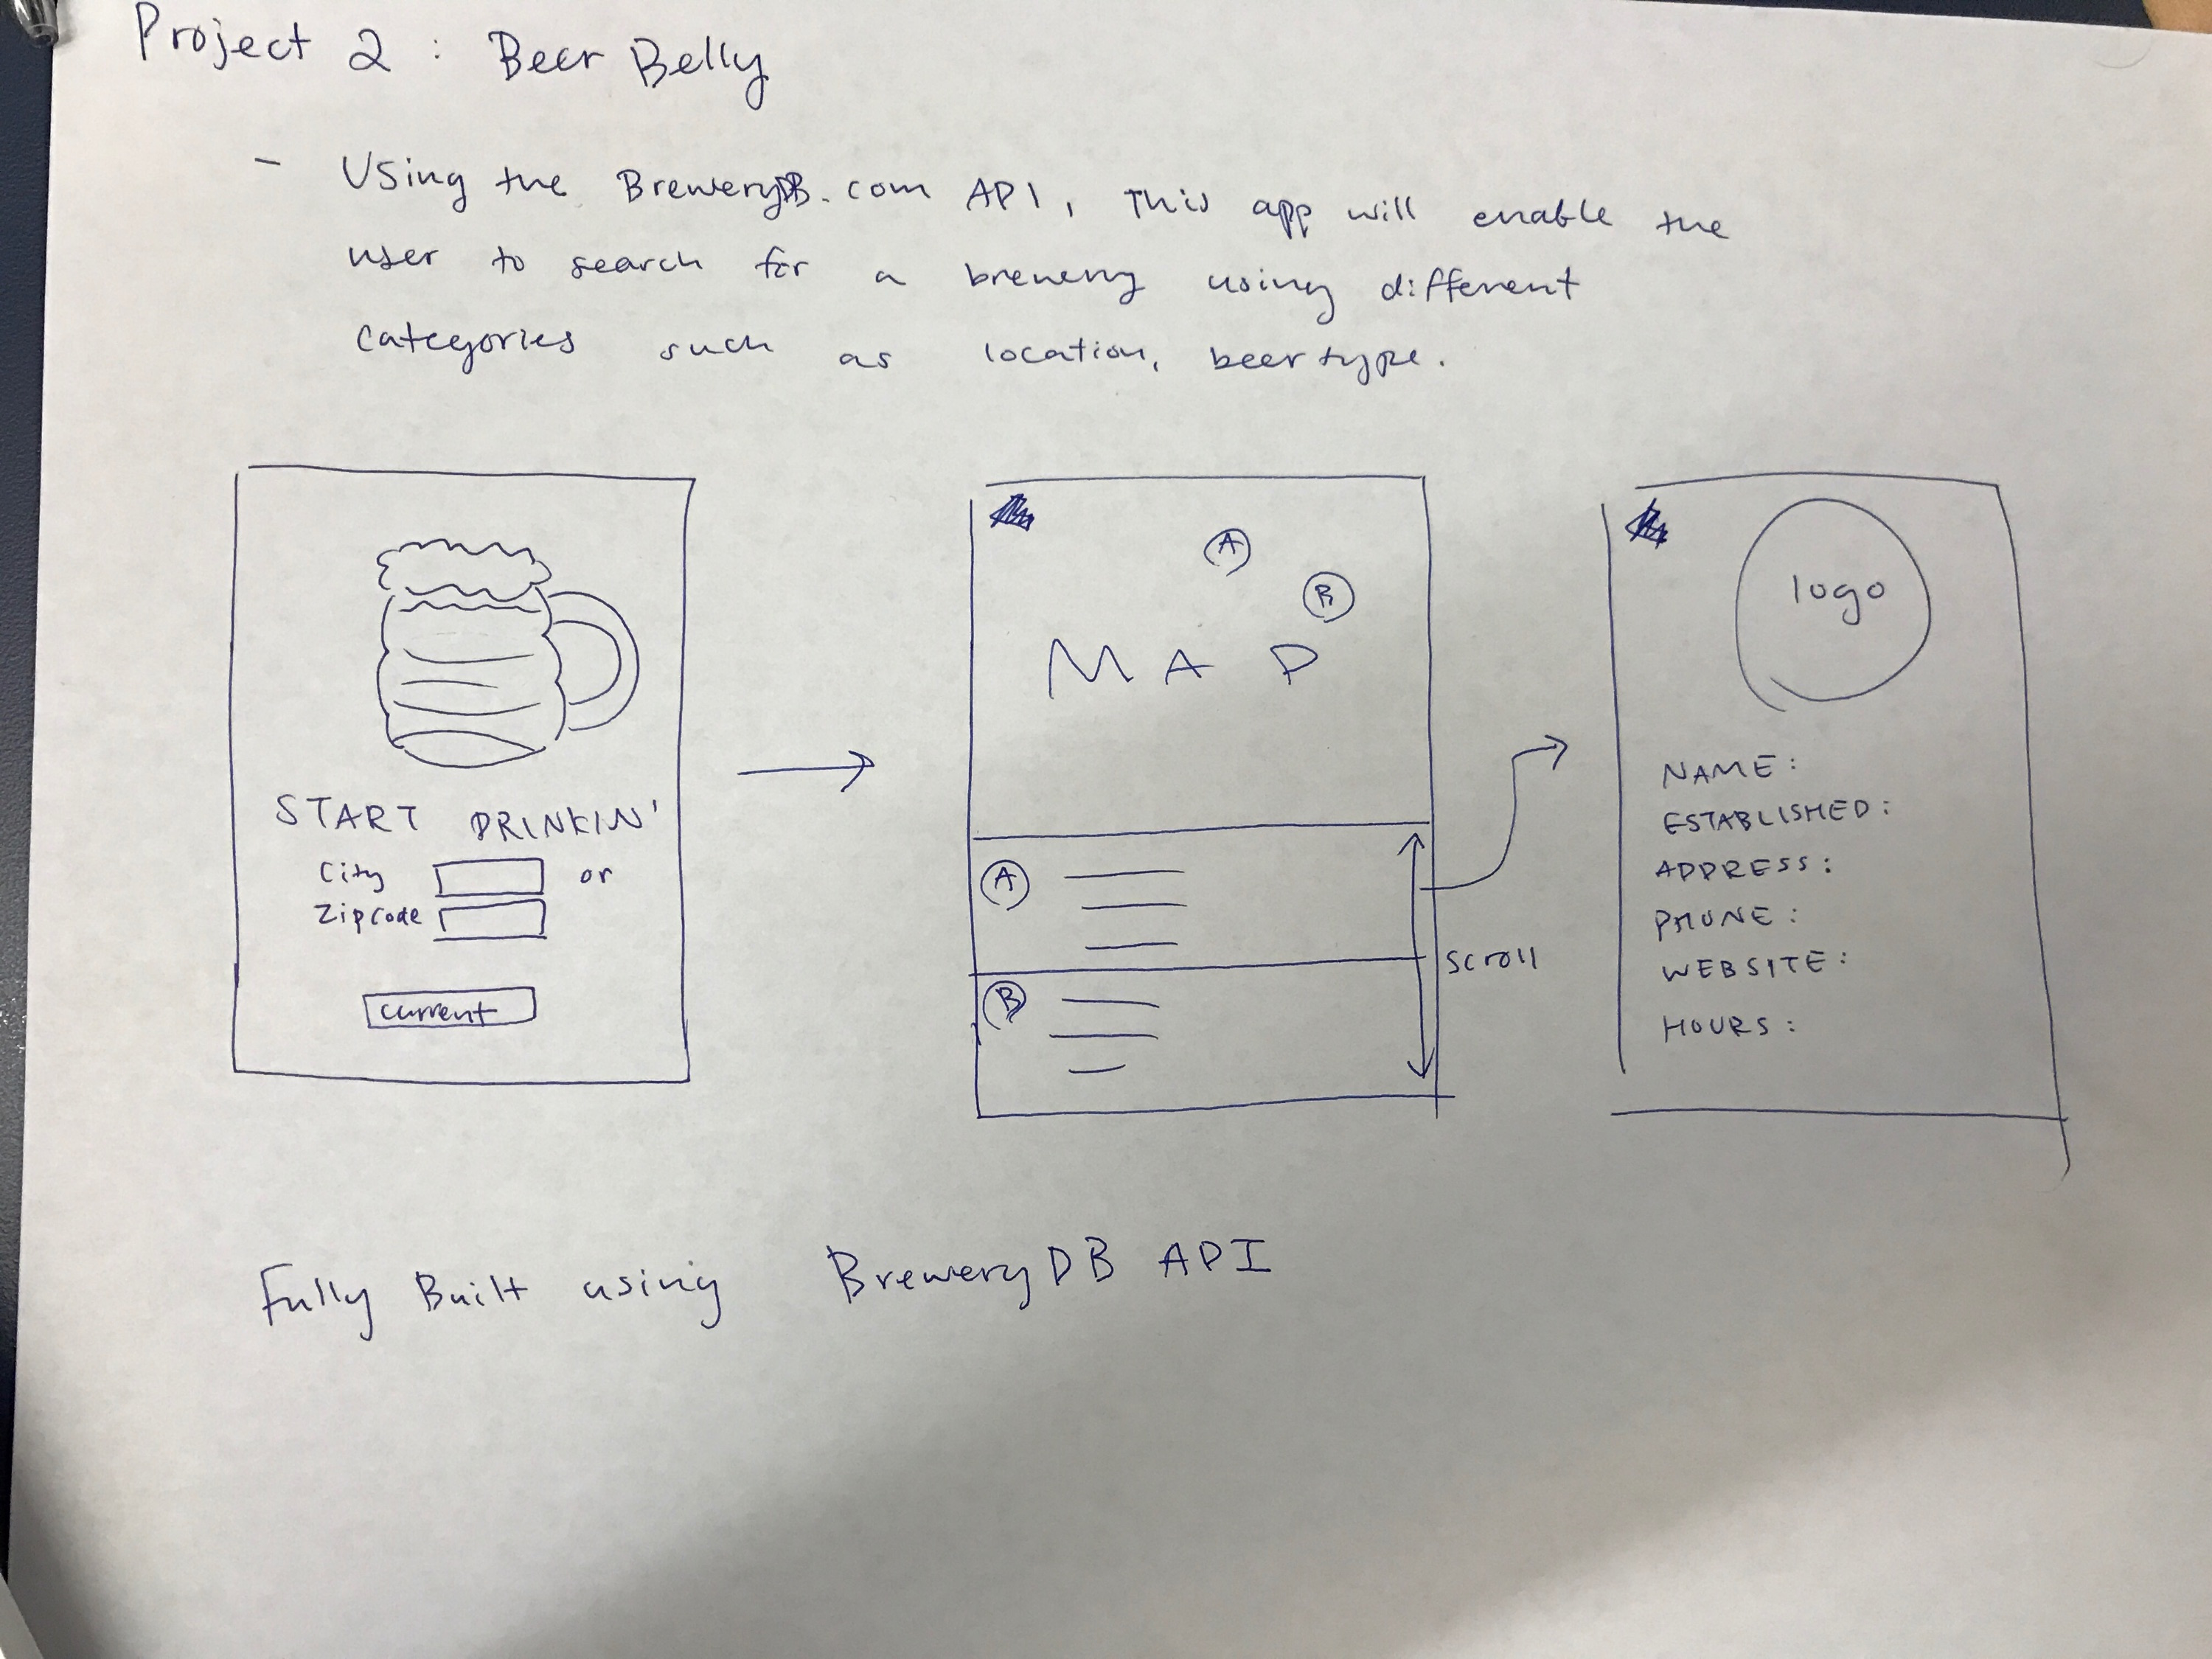 Project 2 : Beer Belly
- Using the BreweryDB.com API, This app will enable the
user to search for a brewery using different
categories such as location, beer type.
START DRINKIN'
City or
Zipcode
current
A
B
MAP
A
B
scroll
logo
NAME:
ESTABLISHED:
ADDRESS:
PHONE:
WEBSITE:
HOURS:
Fully Built using BreweryDB API